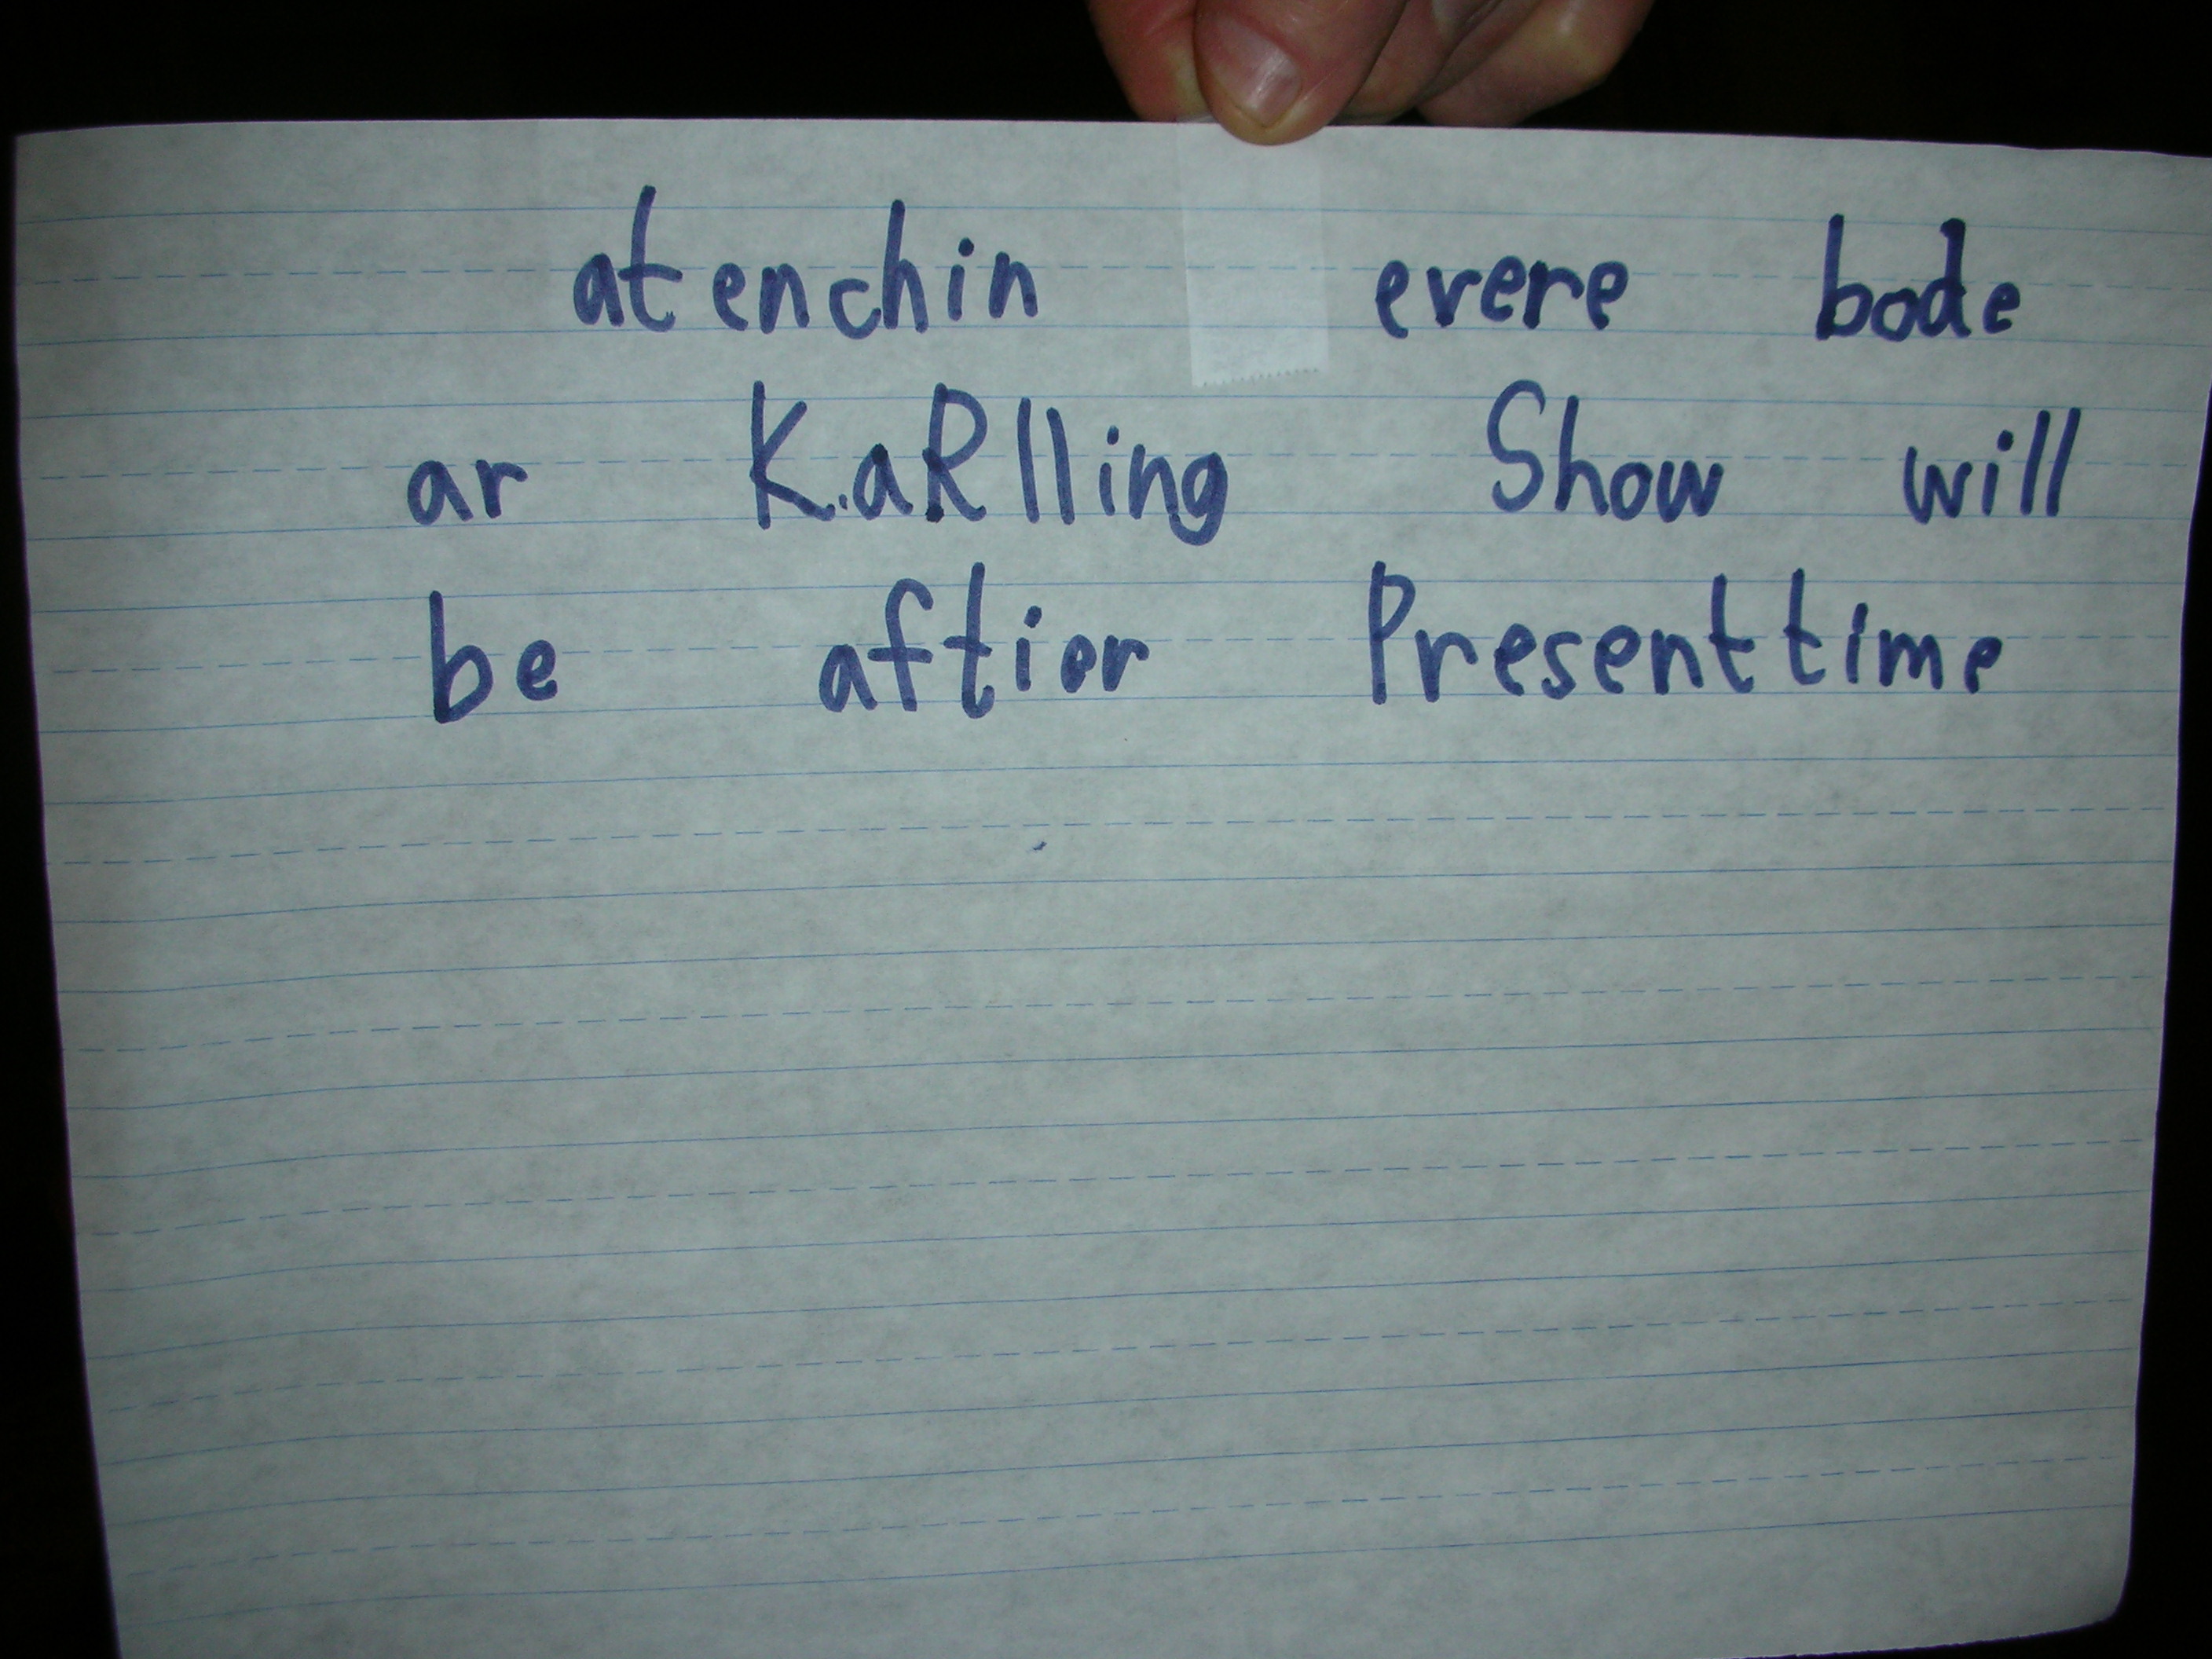 atenchin evere bode
ar KaRlling Show will
be aftior Presenttime